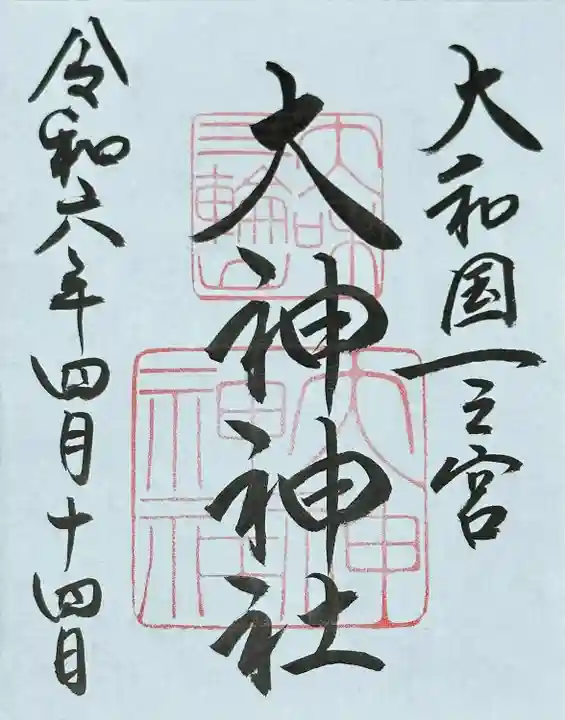 大和国一之宮
大神神社
令和六年四月十四日
三輪山
大神神社